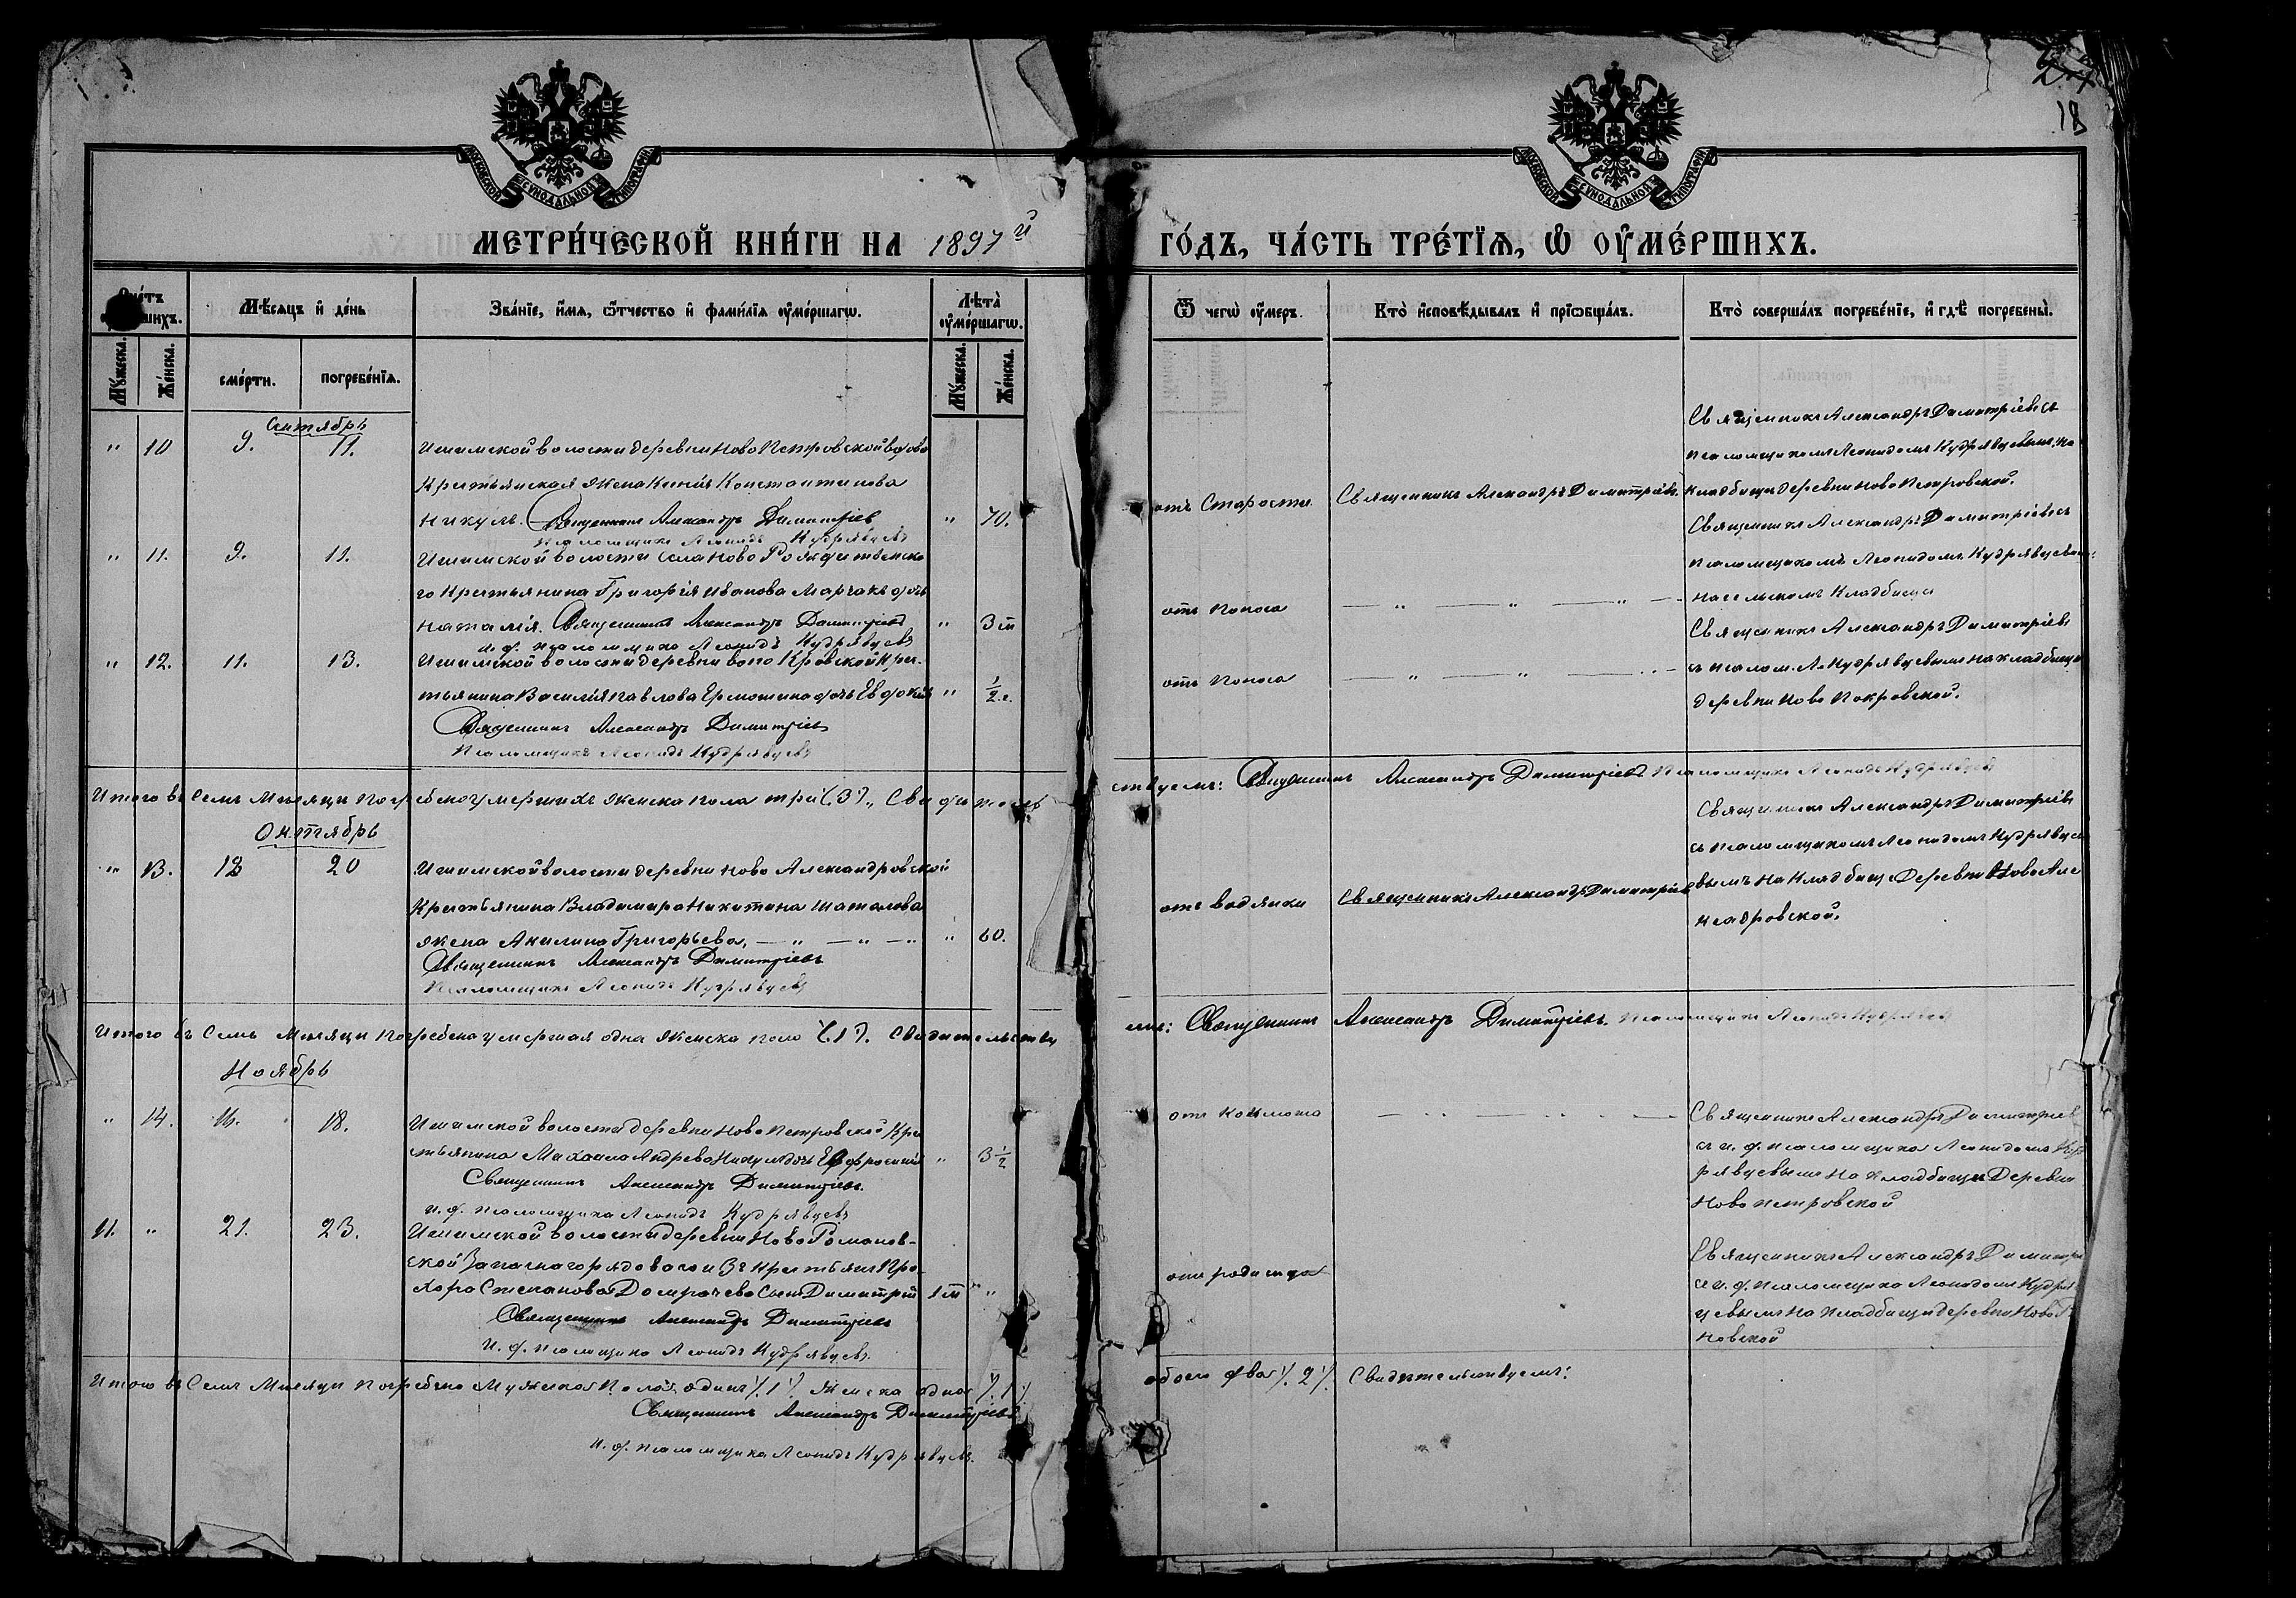 27
18
МОСКОВСКОЙ СѴНОДАЛЬНОЙ ТИПОГРАФІИ
МОСКОВСКОЙ СѴНОДАЛЬНОЙ ТИПОГРАФІИ
МЕТРИ́ЧЕСКОЙ КНИ́ГИ НА 1897й ГО́ДЪ, ЧА́СТЬ ТРЕ́ТІѦ, Ѡ ОУМЕ́РШИХЪ.
Мѣсяцъ и день
Званіе, имя, ѻтчество и фамилія оумершагѡ.
Лѣта оумершагѡ.
Ѿ чегѡ оумеръ.
Кто исповѣдывалъ и пріѡбщалъ.
Кто совершалъ погребеніе, и гдѣ погребены.
Мужеска. Женска.
смерти. погребенія.
Мужеска. Женска.
Сентябрь
" 10 9. 11. Ишимской волости деревни Ново Петровской вдова
Крестьянская жена Константинова
Никуль. Священникъ Александръ Димитріев " 70.
Псаломщикъ Леонидъ Кудрявцевъ
отъ Старости Священникъ Александръ Димитріевъ.
Священникъ Александръ Димитріевъ съ
псаломщикомъ Леонидомъ Кудрявцевымъ, на
кладбищи деревни Ново Петровской.
" 11. 9. 11. Ишимской волости села Ново Рождественско
го Крестьянина Григорія Иванова дочь
Наталія. Священникъ Александръ Димитріев " 3 м
и. ф. псаломщика Леонидъ Кудрявцевъ
отъ Поноса — " — " — " —
Священникъ Александръ Димитріевъ съ
псаломщикомъ Леонидомъ Кудрявцевымъ
на сельскомъ Кладбищи
" 12. 11. 13. Ишимской волости деревни Крес-
тьянина Василія Павлова Ермошина дочь " 1/2 г.
Священникъ Александръ Димитріевъ
Псаломщикъ Леонидъ Кудрявцевъ
отъ Поноса — " — " —
Священникъ Александръ Димитріевъ
съ псалом. Л. Кудрявцевымъ на кладбищи
деревни Ново Покровской.
Итого въ Семъ Месяцы Погребено умершихъ женска пола три (3). Свидетель
ствуемъ: Священникъ Александръ Димитріевъ Псаломщикъ Леонидъ Кудрявцевъ
Октябрь
" 13. 18 20 Ишимской волости деревни Ново Александровской
Крестьянина Владимира Никитина Шаталова
жена Акилина Григорьева, — " — " — " " 60.
Священникъ Александръ Димитріевъ
Псаломщикъ Леонидъ Кудрявцевъ
отъ водянки Священникъ Александръ Димитріевъ
Священникъ Александръ Димитріевъ
съ псаломщикомъ Леонидомъ Кудрявце
вымъ на Кладбище Деревни Ново Але
ксадровской.
Итого въ Семъ Месяцы Погребена умершая одна женска пола (1). Свидетельству
емъ: Священникъ Александръ Димитріевъ. Псаломщикъ Леонидъ Кудрявцев
Ноябрь
" 14. 16. 18. Ишимской волости деревни Ново Петровской Кре
стьянина Михаила Андрева Никуль дочь Евфросинія " 3 1/2
Священникъ Александръ Димитріевъ.
и. ф. псаломщика Леонидъ Кудрявцевъ
— " — " —
Священникъ Александръ Димитріев
съ и. ф. псаломщика Леонидомъ Куд
рявцевымъ на кладбищи Деревни
Ново Петровской
11. " 21. 23. Ишимской волости деревни Ново Романов-
ской Запаснаго рядового изъ крестьян Про-
хора Степанова сынъ Димитрій 1 м "
Священникъ Александръ Димитріевъ
и. ф. псаломщика Леонидъ Кудрявцевъ.
отъ родимца
Священникъ Александръ Димитрі
съ и. ф. псаломщика Леонидомъ Кудряв
цевымъ на кладбищи деревни Ново Р
новской
Итого въ Семъ Месяцы Погребено Мужеска Пола одинъ /.1/. Женска одна /.1/.
обоего два /. 2 /. Свидетельствуемъ:
Священникъ Александръ Димитріевъ
и. ф. псаломщика Леонидъ Кудрявцевъ.